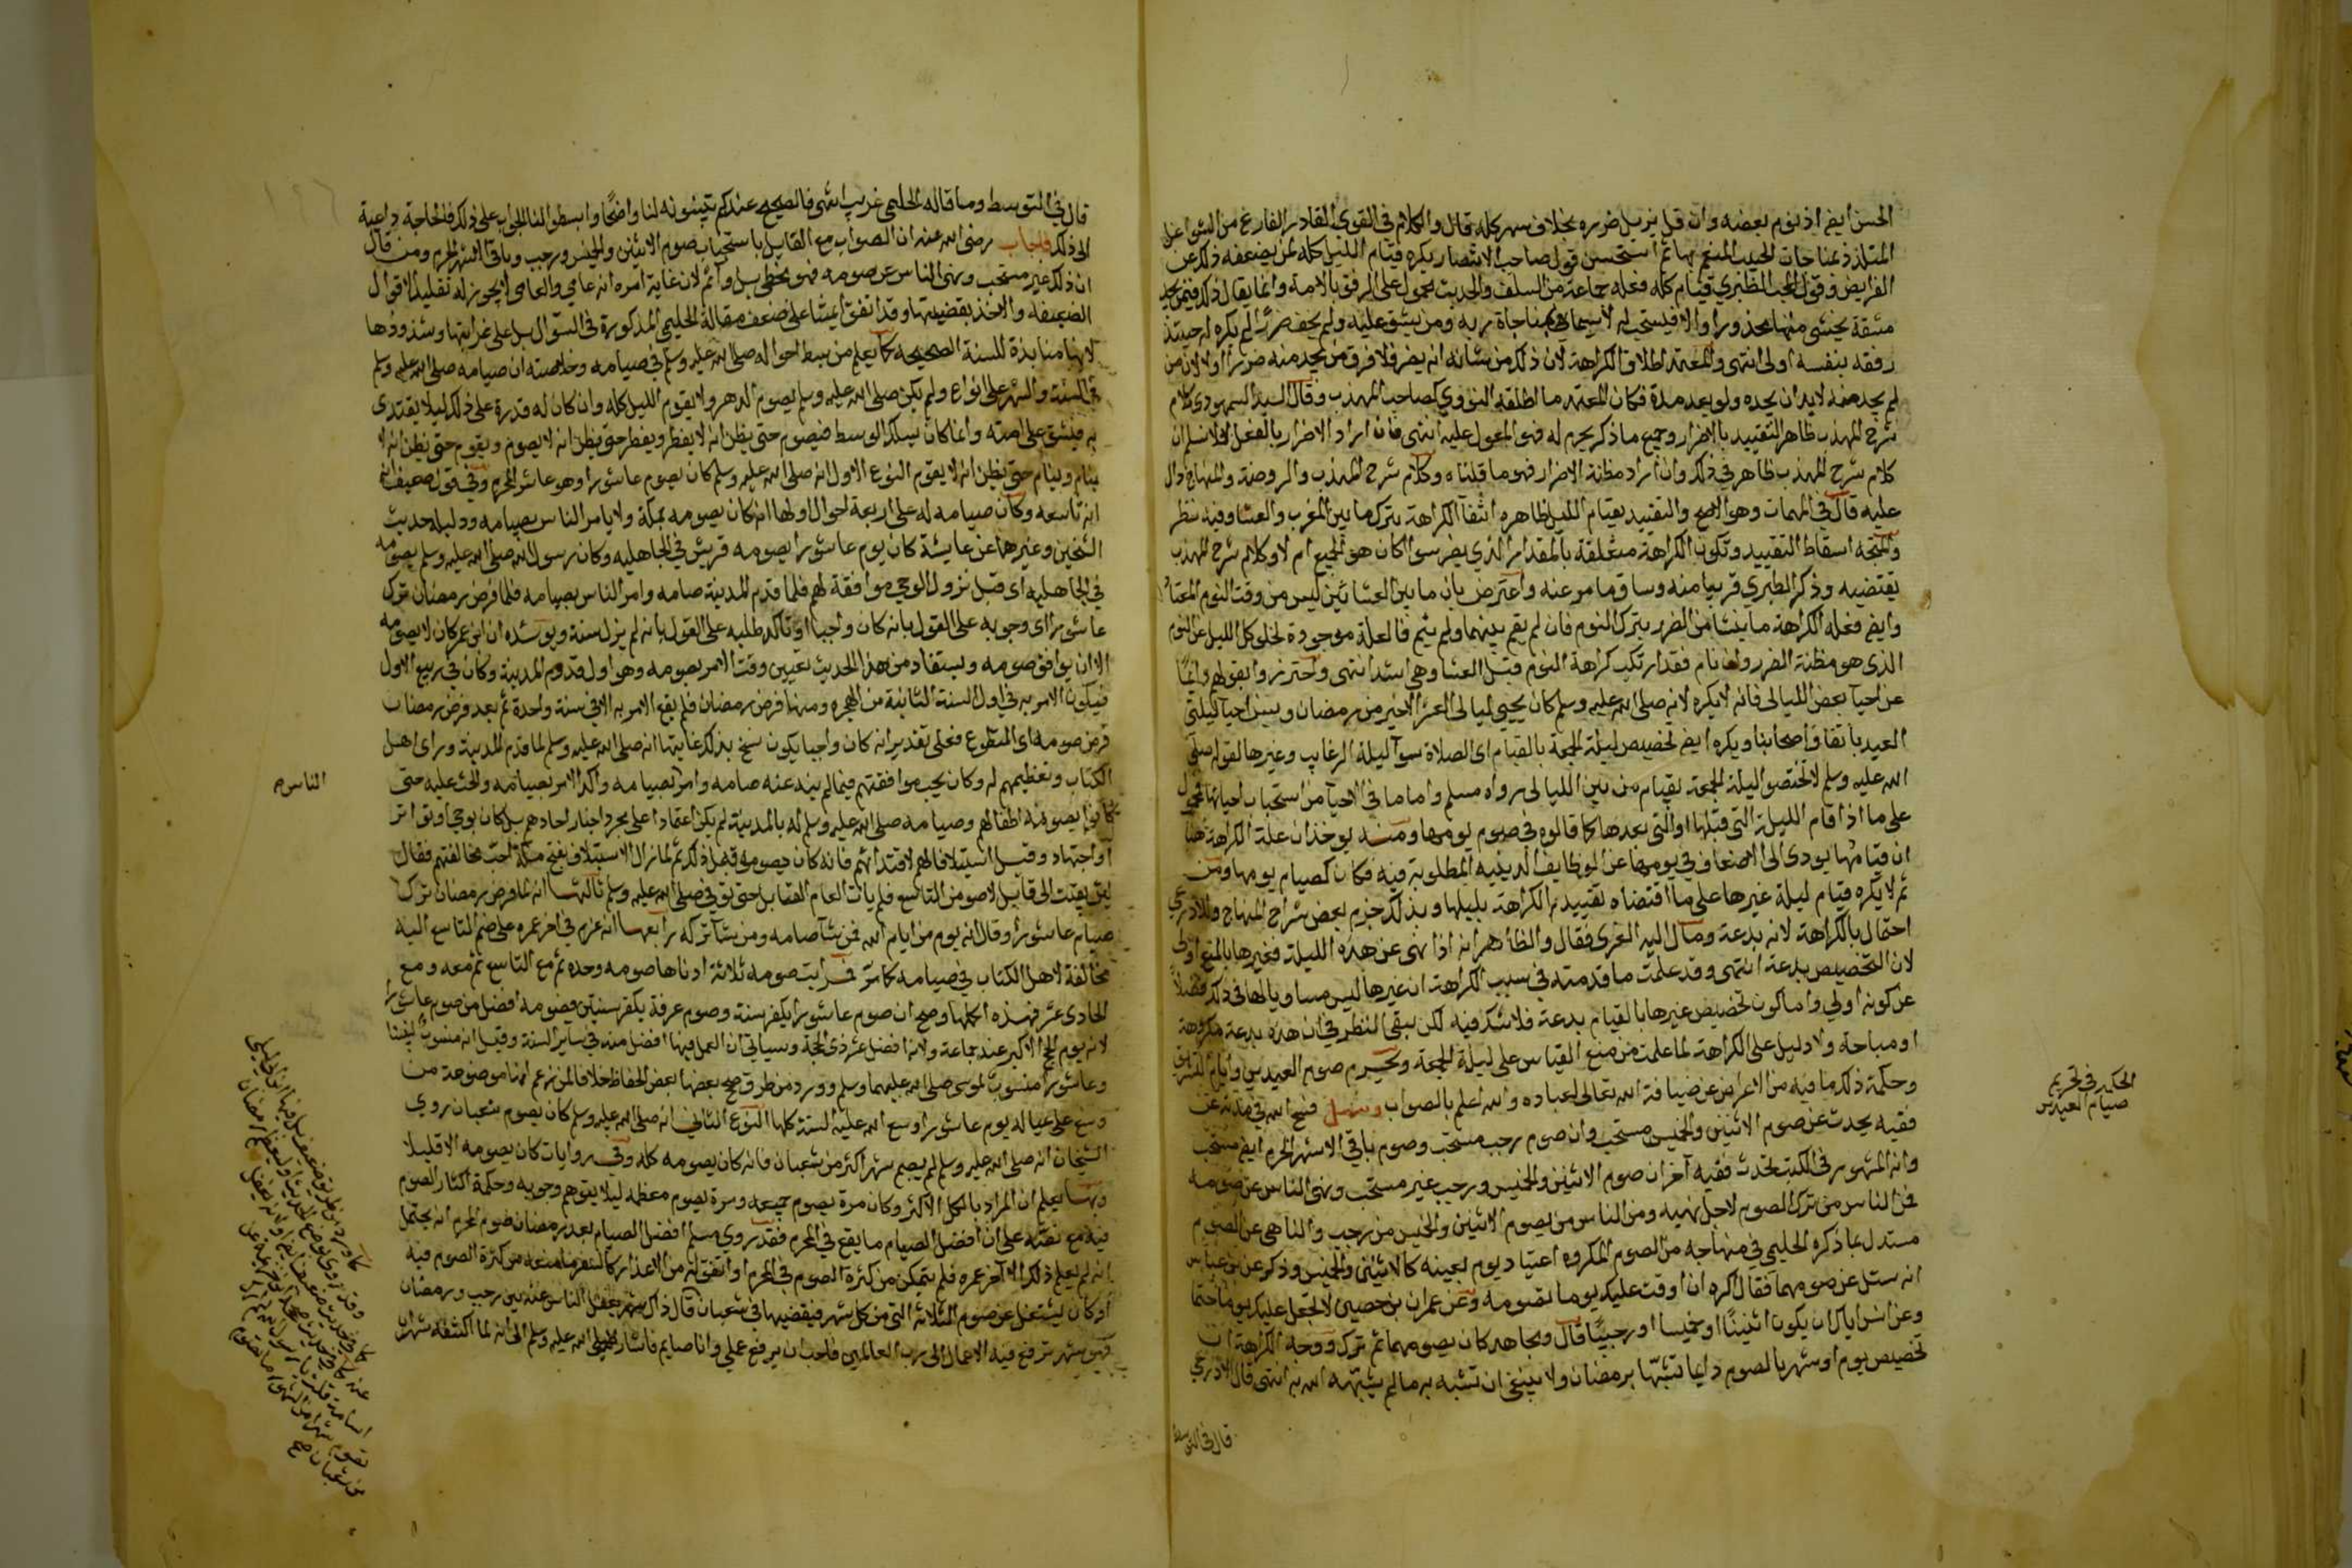 الحسن ايضا اذ نوم بعضه وان قل يزيل ضرره بخلاف سهر كله قال والكلام في القوي القادر الفارغ من الشواغل
المتلذذ بمناجات الحبيب المنعم بها ثم استحسن قول صاحب الانتصار يكره قيام الليل كله لمن يضعفه ذلك عن
الفرايض وقول المحب الطبري قيام كله فعله جماعة من السلف والحديث محمول على الرفق بالامة وانما يقال ذلك فيمن يجد
مشقة يخشى منها محذورا والا فيستحب له لاسيما بمناجاة ربه ومن يشق عليه ولم يخف ضررا لم يكره له حينئذ
رفقه بنفسه اولى انتهى والمعتمد اطلاق الكراهة لان ذلك من شانه ان يضر فلا فرق من يجد منه ضررا اولا لان من
لم يجد منه لابد ان يجده ولو بعد مدة فكان المعتمد ما اطلقه النووي كصاحب المهذب وقال السيد السمهودي كلام
شرح المهذب ظاهر التقييد بالاضرار وجميع ما ذكر يحرم له فهو المعول عليه انتهى فان اراد الاضرار بالفعل فلا نسلم ان
كلام شرح المهذب ظاهر في ذلك وان اراد مظنة الاضرار فهو ما قلناه وكلام شرح المهذب والروضة والمنهاج دال
عليه قال في المهمات وهو الاصح والتقييد بقيام الليل ظاهره انتفا الكراهة بترك ما بين المغرب والعشا وفيه نظر
والمتجه اسقاط التقييد وتكون الكراهة متعلقة بالمقدار الذي يضر سوا كان هو الجميع ام لا وكلام شرح المهذب
يقتضيه وذكر الطبري قريبا منه وساق ما مر عنه واعترض بان ما بين العشائين ليس من وقت النوم المعتاد
وايضا فعلة الكراهة ما ينشا من الضرر بترك النوم فان لم يقم بينهما ولم ينم فالعلة موجودة لخلو كل الليل عن النوم
الذي هو مظنة الضرر وان نام فقد ارتكب كراهة النوم قبل العشا وهي اشد انتهى واحترزوا بقولهم دايما
عن احيا بعض الليالي فانه لا يكره لانه صلى الله عليه وسلم كان يحيي ليالي العشر الاخير من رمضان ويسن احيا ليلتي
العيد باتفاق اصحابنا ويكره ايضا تخصيص ليلة الجمعة بالقيام اي الصلاة سوا ليلة الرغايب وغيرها لقوله صلى
الله عليه وسلم لا تختصوا ليلة الجمعة بقيام من بين الليالي رواه مسلم واما ما في الاحيا من استحباب احيائها فمحمول
على ما اذا قام الليلة التي قبلها او التي بعدها كما قالوه في صوم يومها ومنه يوخذ ان علة الكراهة هنا
ان قيامها يودي الى الاضعاف في يومها عن الوظايف الدينية المطلوبة فيه فكان كصيام يومها ومن
ثم لا يكره قيام ليلة غيرها على ما اقتضاه تقييد الكراهة بليلها وبذلك جزم بعض شراح المنهاج وللاذرعي
احتمال بالكراهة لانه بدعة ومال اليه الغزي فقال والظاهر انه اذا نهى عن هذه الليلة فغيرها بالمنع اولى
لان التخصيص بدعة انتهى وقد علمت ما قدمته في سبب الكراهة ان غيرها ليس مساويا لها في ذلك فضلا
عن كونه اولي واما كون تخصيص غيرها بالقيام بدعة فلا شك فيه لكن يبقى النظر في ان هذه بدعة مكروهة
او مباحة ولا دليل على الكراهة لما علمت من منع القياس على ليلة الجمعة وتحريم صوم العيدين وايام التشريق
وحكمة ذلك ما فيه من الاعراض عن ضيافة الله تعالى لعباده والله اعلم بالصواب وسئل فسح الله في مدته عن
فقيه يحدث عن صوم الاثنين والخميس مستحب وان صوم رجب مستحب وصوم باقي الاشهر الحرم ايضا مستحب
وانه المشهور في الكتب تحدث فقيه آخر ان صوم الاثنين والخميس ورجب غير مستحب ونهى الناس عن صومه
فمن الناس من ترك الصوم لاجل نهيه ومن الناس من يصوم الاثنين والخميس من رجب والناهي عن الصوم
مستدل بما ذكره الحليمي في منهاجه من الصوم المكروه اعتياد يوم بعينه كالاثنين والخميس وذكر عن ابن عباس
انه سئل عن صومهما فقال اكره ان اوقت عليك يوما تصومه وعن عمران بن حصين لا تجعل عليك يوما حتما
وعن انس اياك ان يكون اثنينا او خميسا او رجبيا قال ومجاهد كان يصومهما ثم ترك ووجه الكراهة ان
تخصيص يوم او شهر بالصوم دايما تشبها برمضان ولا ينبغي ان تشبه به ما لم يشبهه الله به انتهى قال الاذرعي
قال في التوسط
الحكمة في تحريم
صيام العيدين
قال في التوسط وما قاله الحليمي غريب انتهى فالصحيح عندكم تبينونه لنا واضحا وابسطوا لنا الجواب على ذلك فالحاجة داعية
الى ذلك فاجاب رضي الله عنه ان الصواب مع القايل باستحباب صوم الاثنين والخميس ورجب وباقي الاشهر الحرم ومن قال
ان ذلك غير مستحب ونهى الناس عن صومه فهو مخطي بل وآثم لان غاية امره انه عامي والعامي لا يجوز له تقليد الاقوال
الضعيفة والاخذ بقضيتها وقد اتفق ايمتنا على ضعف مقالة الحليمي المذكورة في السوال بل على غرابتها وشذوذها
لانها منابذة للسنة الصحيحة كما يعلم من بسط احواله صلى الله عليه وسلم في صيامه وخلاصته ان صيامه صلى الله عليه وسلم
في السنة والشهر على انواع ولم يكن صلى الله عليه وسلم يصوم الدهر ولا يقوم الليل كله وان كان له قدرة على ذلك ليلا يقتدى
به فيشق على امته وانما كان يسلك الوسط فيصوم حتى يظن انه لا يفطر ويفطر حتى يظن انه لا يصوم ويقوم حتى يظن انه لا
ينام وينام حتى يظن انه لا يقوم النوع الاول انه صلى الله عليه وسلم كان يصوم عاشورا وهو عاشر المحرم وفي قول ضعيف
انه تاسعه وكان صيامه له على اربعة احوال اولها انه كان يصومه بمكة ولا يامر الناس بصيامه ودليله حديث
الشيخين وغيرهما عن عايشة كان يوم عاشورا يصومه قريش في الجاهلية وكان رسول الله صلى الله عليه وسلم يصومه
في الجاهلية اي قبل نزول الوحي موافقة لهم فلما قدم المدينة صامه وامر الناس بصيامه فلما فرض رمضان ترك
عاشورا اي وجوبه على القول بانه كان واجبا او تاكد طلبه على القول بانه لم يزل سنة ويويده ان ابن عمر كان لا يصومه
الا ان يوافق صومه ويستفاد من هذا الحديث تعيين وقت الامر بصومه وهو اول قدوم المدينة وكان في ربيع الاول
فيكون الامر به في اول السنة الثانية من الهجرة ومنها فرض رمضان فلم يقع الامر به الا في سنة واحدة ثم بعد فرض رمضان
فرض صومه اي المتطوع فعلى تقدير انه كان واجبا يكون نسخ بذلك غايتها انه صلى الله عليه وسلم لما قدم المدينة وراى اهل
الكتاب وتعظيمهم له وكان يحب موافقتهم فيما لم ينه عنه صامه وامر بصيامه واكد الامر بصيامه والحث عليه حتى
كانوا يصومونه اطفالهم وصيامه صلى الله عليه وسلم له بالمدينة لم يكن اعتمادا على مجرد اخبار احادهم بل كان بوحي او تواتر
او اجتهاد وقيل استيلافا لهم لاقتدائهم فانه كان يصومه قبل ذلك ثم لما زال الاستيلاف بفتح مكة احب مخالفتهم فقال
لين بقيت الى قابل لاصومن التاسع فلم يات العام القابل حتى توفي صلى الله عليه وسلم ثالثها انه لما فرض رمضان ترك
صيام عاشورا وقال انه يوم من ايام الله فمن شا صامه ومن شا تركه رابعها انه عزم في اخر عمره على ضم التاسع اليه
مخالفة لاهل الكتاب في صيامه كما مر فمراتب صومه ثلاثة ادناها صومه وحده ثم مع التاسع ثم معه ومع
الحادي عشر فهذه اكملها وصح ان صوم عاشورا يكفر سنة وصوم عرفة يكفر سنتين فصومه افضل من صوم عاشورا
لانه يوم الحج الاكبر عند جماعة ولانه افضل عشر ذي الحجة وسياتي ان العمل فيها افضل منه في ساير السنة وقيل انه منسوب لنبينا
وعاشورا منسوب لموسى صلى الله عليهما وسلم وورد من طرق صحح بعضها بعض الحفاظ خلافا لمن زعم انها موضوعة من
وسع على عياله يوم عاشورا وسع الله عليه السنة كلها النوع الثاني انه صلى الله عليه وسلم كان يصوم شعبان روي
الشيخان انه صلى الله عليه وسلم لم يصم شهرا اكثر من شعبان فانه كان يصومه كله وفي روايات كان يصومه الا قليلا
وبها يعلم ان المراد بالكل الاكثر وكان مرة يصوم جميعه ومرة يصوم معظمه ليلا يتوهم وجوبه وحكمة اكثار الصوم
فيه مع نصه على ان افضل الصيام ما يقع في المحرم فقد روى مسلم افضل الصيام بعد رمضان صوم المحرم انه يحتمل
انه لم يعلم ذلك الا آخر عمره فلم يتمكن من كثرة الصوم في المحرم او اتفق له من الاعذار كالسفر ما منعه من كثرة الصوم فيه
او كان يشتغل عن صوم الثلاثة التي من كل شهر فيقضيها في شعبان قال ذاك شهر يغفل الناس عنه بين رجب ورمضان
وهو شهر ترفع فيه الاعمال الى رب العالمين فاحب ان يرفع عملي وانا صايم فاشار صلى الله عليه وسلم الى انه لما اكتنفه شهران
الناس